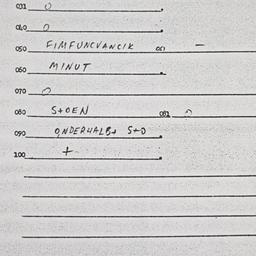 031 0
040 0
050 FIMFUNCVANCIK 051 -
060 MINUT
070 0
080 S+OEN 081 0
090 ONDERHALB+ S+D
100 +